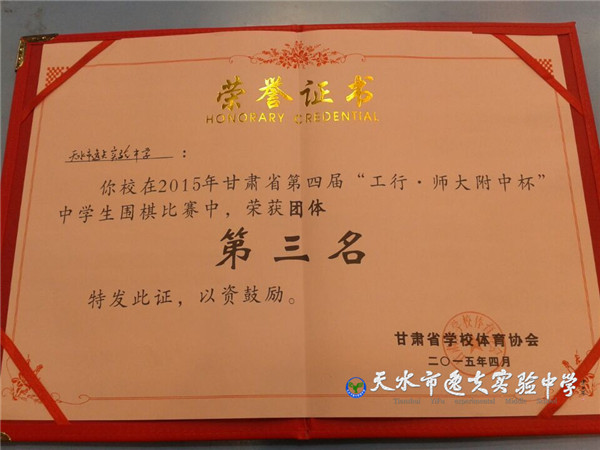 荣誉证书
HONORARY CREDENTIAL
天水市逸夫实验中学:
你校在2015年甘肃省第四届“工行·师大附中杯”
中学生围棋比赛中，荣获团体
第三名
特发此证，以资鼓励。
甘肃省学校体育协会
二〇一五年四月
天水市逸夫实验中学